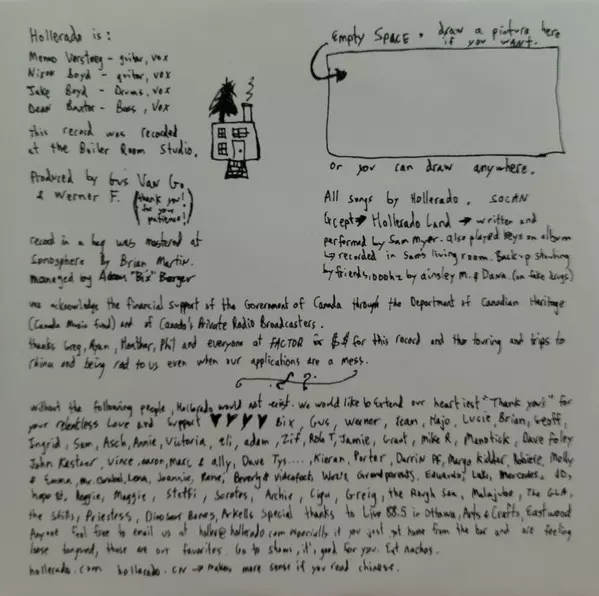 Hollerado is:
Menno Versteeg - guitar, vox
Nixon Boyd - guitar, vox
Jake Boyd - Drums, vox
Dean Baxter - Bass, Vox
this record was recorded
at the Boiler Room Studio.
Produced by Gus Van Go
& Werner F. (thank you! for your patience!)
record in a bag was mastered at
Sonosphere by Brian Martin.
managed by Adam "Bix" Berger
Empty SPACE. draw a picture here
if you want.
or you can draw anywhere.
All songs by Hollerado. SOCAN
Except → Hollerado Land → written and
performed by Sam Myer. also played keys on album
↳ recorded in Sam's living room. Back-up
by friends, ooohz by ainsley M. & Dana. (on fake drugs)
we acknowledge the financial support of the Government of Canada through the Department of Canadian Heritage
(Canada Music Fund) and of Canada's Private Radio Broadcasters.
thanks Greg, Heather, Phil and everyone at FACTOR for $$ for this record and the touring and trips to
china and being rad to us even when our applications are a mess.
without the following people, Hollerado would not exist. we would like to Extend our heartiest "Thank yous" for
your relentless Love and Support ♥ ♥ ♥ ♥ Bix, Gus, Werner, Jean, Lucie, Brian, Geoff,
Ingrid, Sam, Asch, Annie, Victoria, Eli, adam, Zif, Rob T, Jamie, Grant, Mike R, Manotick, Dave Foley
John Kastner, Vince, aaron, marc & ally, Dave Tys...., Kieran, Porter, Darrin PF, Margo Kidder, Molly
& Emma, Lena, Joannie, Rene, Beverly & videofact, Grandparents, Eduardo, Mercedes, JD,
Reggie, Maggie, Steffi, Sorotos, Archie, Greig, the Rough Sea, Malajube, The GLA,
the Stills, Priestess, Dinosaur Bones, Arkells Special thanks to Live 88.5 in Ottawa, Arts & Crafts, Eastwood
Anyone feel free to email us at holler@hollerado.com especially if you just got home from the bar and are feeling
loose tongued, those are our favorites. Go to shows, it's good for you. Eat nachos.
hollerado.com hollerado.cn → makes more sense if you read chinese.